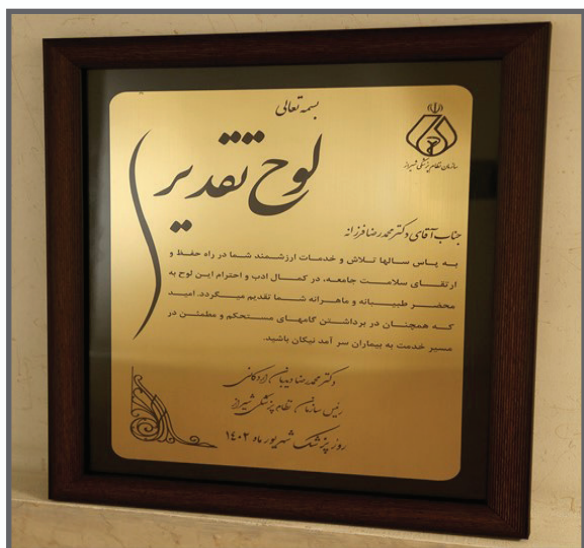 بسمه تعالی
لوح تقدیر
سازمان نظام پزشکی شیراز
جناب آقای دکتر محمدرضا فرزانه
به پاس سالها تلاش و خدمات ارزشمند شما در راه حفظ و
ارتقای سلامت جامعه، در کمال ادب و احترام این لوح به
محضر طبیبانه و ماهرانه شما تقدیم میگردد. امید
که همچنان در برداشتن گامهای مستحکم و مطمئن در
مسیر خدمت به بیماران سر آمد نیکان باشید.
دکتر محمدرضا دیدبان اردکانی
رئیس سازمان نظام پزشکی شیراز
روز پزشک شهریور ماه ۱۴۰۲